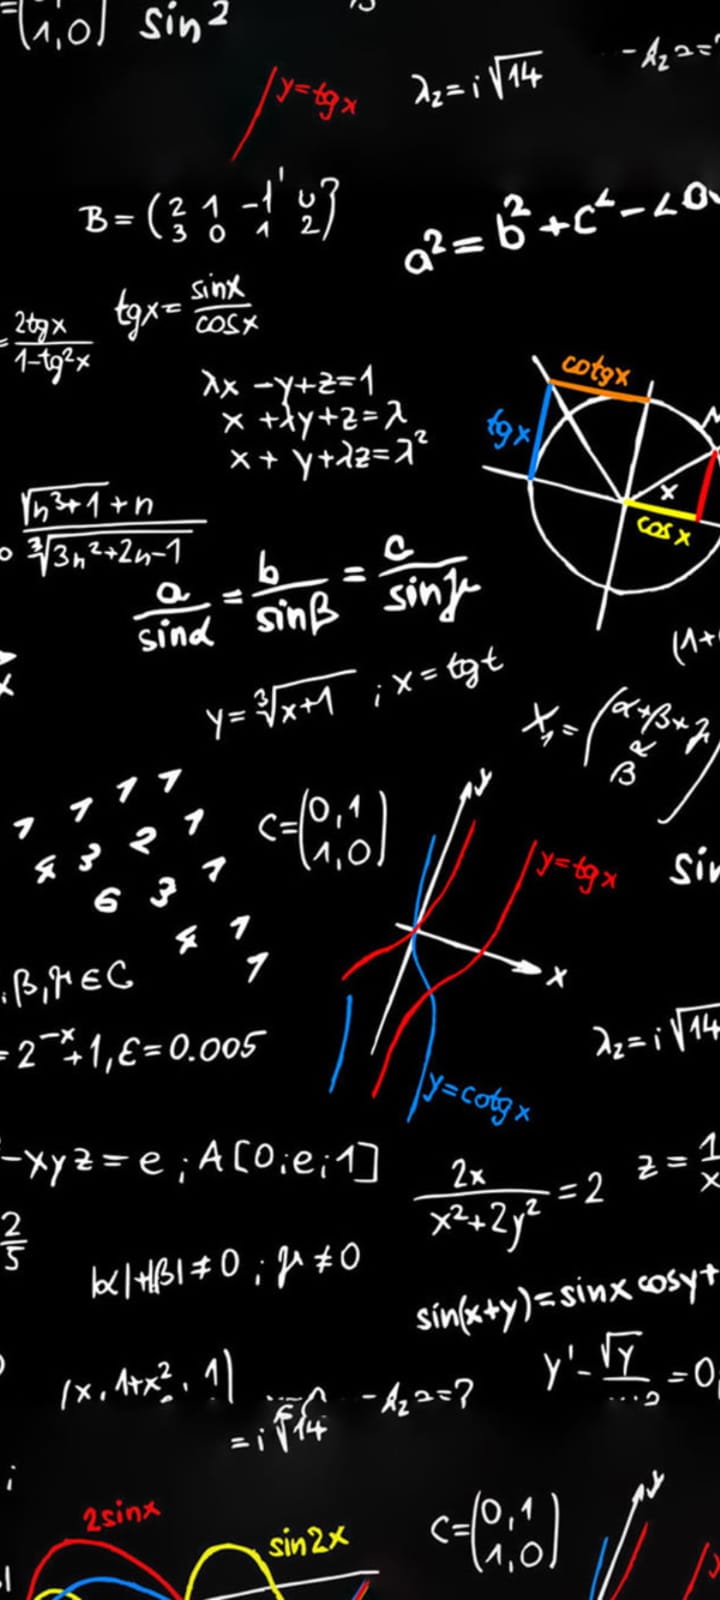 = (1,0) sin²
y=tgx
λ₂=i√14
B=(2 1 -1
3 0 1 2)
a²=b²+c²-2
2tgx/1-tg²x
tgx=sinx/cosx
λx-y+z=1
x+λy+z=λ
x+y+λz=λ²
cotgx
tgx
x
cosx
√n³+1+n/∛3n²+2n-1
a/sinα=b/sinβ=c/sinγ
(1+
y=∛x+1 ; x=tgt
X₁=(α+β+γ
α
β
1 1 1 1
4 3 2 1
6 3 1
4 1
1
C=(0,1
1,0)
y
y=tgx
x
y=cotgx
sin
β,γ∈C
=2⁻ˣ+1,ε=0.005
λ₂=i√14
-xyz=e ; A[0;e;1]
2x/x²+2y²=2
z=1/x
2/5
|α|+|β|≠0 ; γ≠0
sin(x+y)=sinx cosy+
(x, 1+x², 1)
=i√14
y'-√y
=0
2sinx
sin2x
C=(0,1
1,0)
y